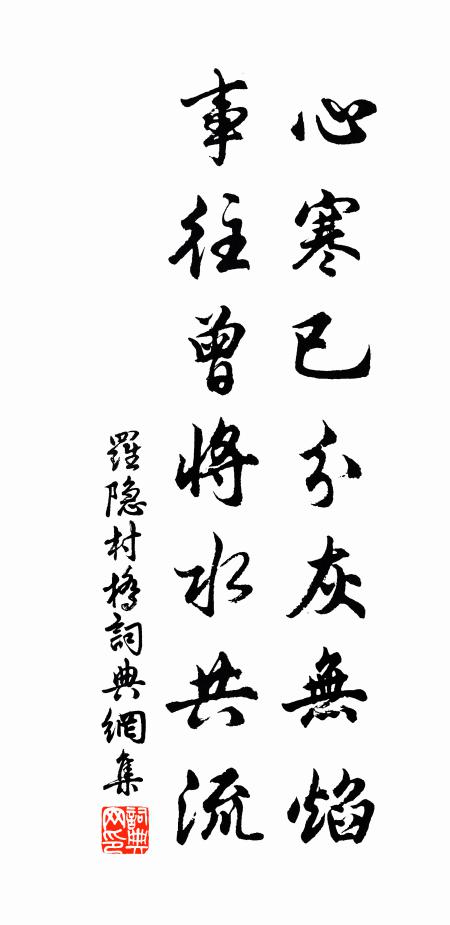 心寒已分灰無焰
事往曾將水共流
羅隐村橋詞典網集
詞典
网印